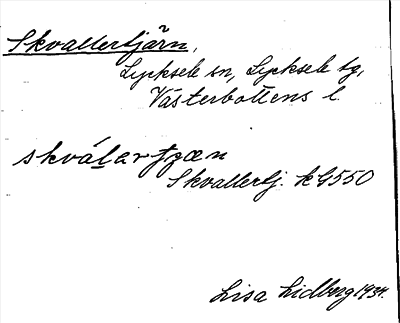 Skvallertjärn,
Lycksele sn, Lycksele tg,
Västerbottens l.
skválartjæn
Skvallertj. kG550
Lisa Lidberg 1934.